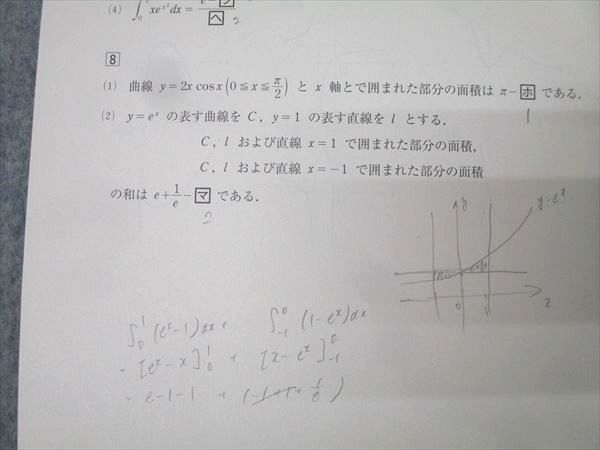 (4) ∫₀¹ xe^{x²}dx = (e−フ)/ヘ
2
8
(1) 曲線 y=2x cos x (0≦x≦π/2) と x 軸とで囲まれた部分の面積は π−ホ である.
1
(2) y=eˣ の表す曲線を C, y=1 の表す直線を l とする.
C, l および直線 x=1 で囲まれた部分の面積,
C, l および直線 x=−1 で囲まれた部分の面積
の和は e+1/e−マ である.
2
y y=eˣ
0 1 x
∫₀¹ (eˣ−1)dx + ∫₋₁⁰ (1−eˣ)dx
= [eˣ−x]₀¹ + [x−eˣ]₋₁⁰
= e−1−1 + (−1+1+1/e)